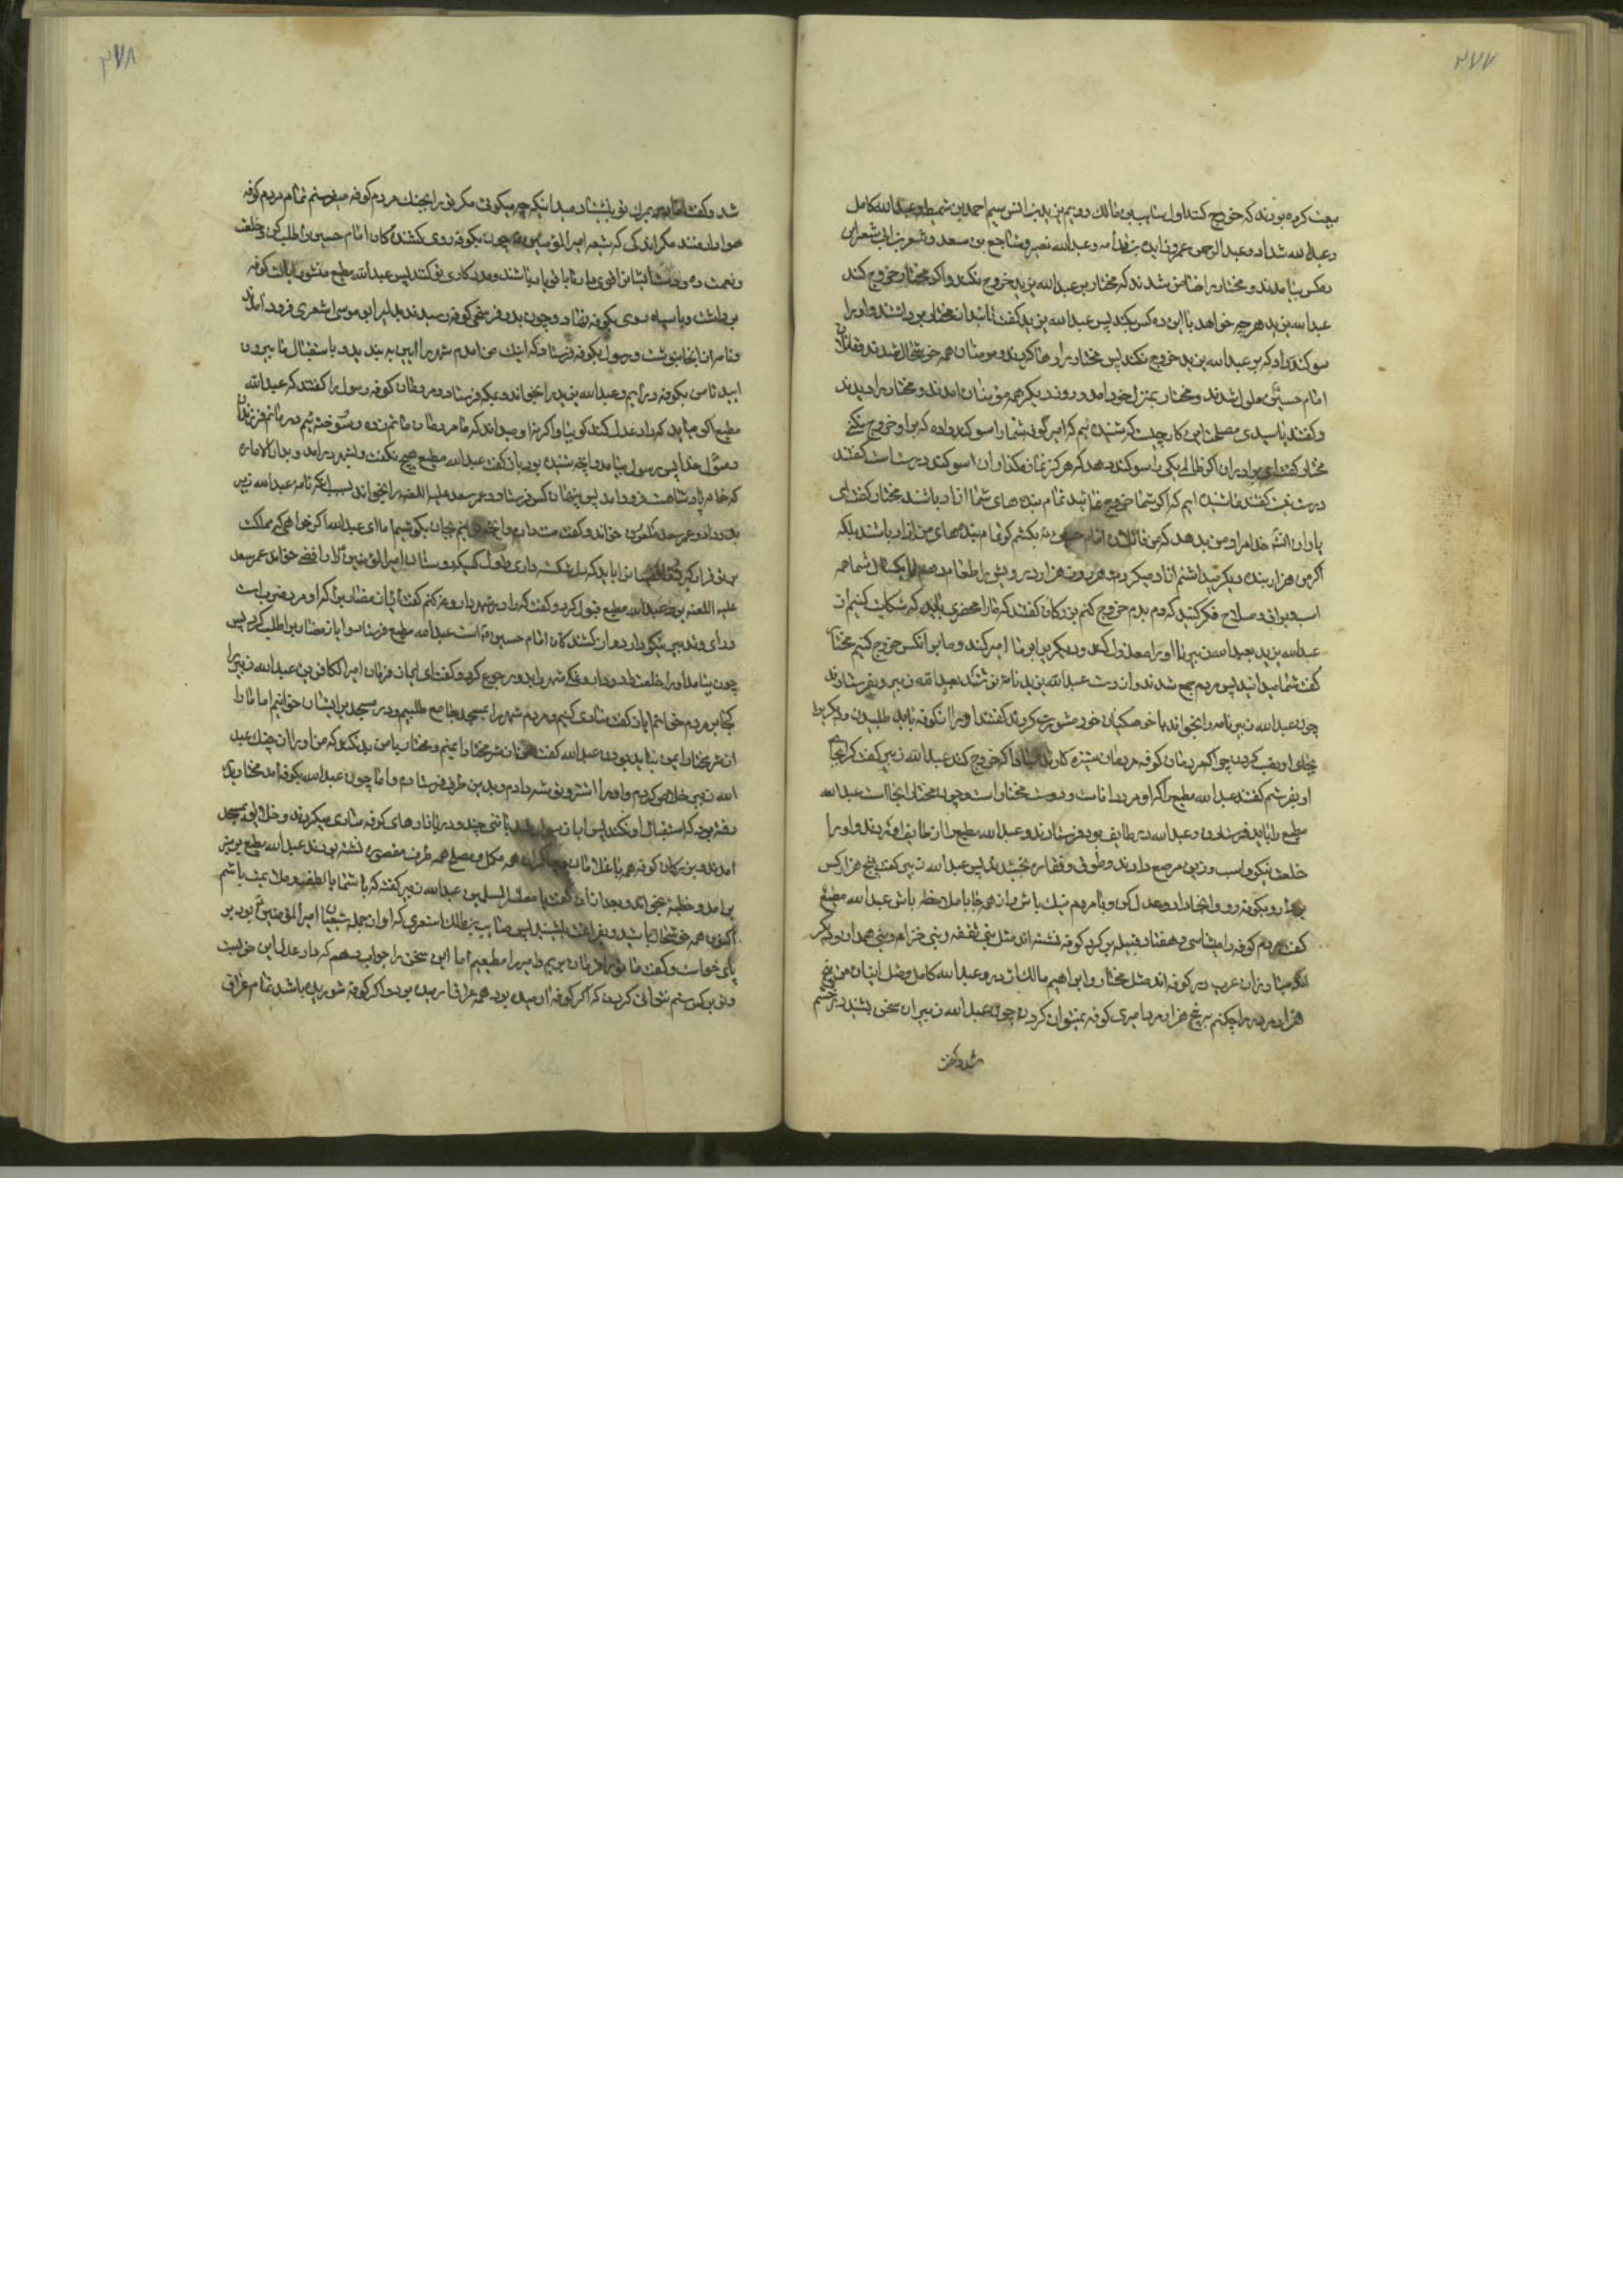 ۲۷۷
بیعت کرده بودند که خروج کنند اول سایب بن مالک دویم بن یزید انس سیم احمد بن شمیط و عبدالله کامل
و عبدالله شداد و عبدالرحمن عمر و زایده بن قدامه و عبدالله نصیر و متاجع بن سعد و شعر بن ابی شعر این
ده کس بیامدند و مختار را ضامن شدند که مختار بر عبدالله یزید خروج نکند و اگر مختار خروج کند
عبدالله یزید هر چه خواهد با این ده کس بکند پس عبدالله بن یزید گفت تا بند از مختار برداشتند و او را
سوگند داد که بر عبدالله یزید خروج نکند پس مختار را رها کردند و مومنان همه خوشحال شدند و قاتلان
امام حسین ملول شدند و مختار بمنزل خود آمد و روز دیگر همه مومنان آمدند و مختار را دیدند
و گفتند یا سیدی مصلحت این کار چیست که شنیده ایم که امیر کوفه شما را سوگند داده که بر او خروج نکنی
مختار گفت ای برادران اگر ظالمی یکی را سوگند دهد که هرگز نماز مگذار آن سوگند درست است گفتند
درست نیست گفتند ما شنیده ایم که اگر شما خروج نمائید تمام بنده های شما آزاد باشند مختار گفت ای
یاران الله خدا مراد من بدهد که من قاتلان امام حسین بکشم گو تمام بنده های من آزاد باشند بلکه
اگر من هزار بنده دیگر میداشتم آزاد میکردم و هر روز هزار درویش را طعام دهم تا یکسال شما همه
اسب و یراق و صلاح فکر کنید که من بدم خروج کنم بزرگان گفتند که ما را محضری باید که شکایت کنیم از
عبدالله یزید بعبدالله زبیر تا او را معزول کند و دیگری را بر ما امیر کند و ما بر آنکس خروج کنیم مختار
گفت شما میدانید پس مردم جمع شدند و از دست عبدالله بن یزید نامه نوشتند بعبدالله زبیر و بفرستادند
چون عبدالله زبیر نامه را بخواند با خواصگیان خود مشورت کردند گفتند او را از کوفه باید طلبیدن و دیگری را
بجای او نصب کردن چرا که مردمان کوفه مردمان ستیزه کارند مبادا که خروج کنند عبدالله زبیر گفت کرا بجا
او بفرستم گفتند عبدالله مطیع را که او مرد دانا است و دوست مختار است و چون مختار آنجا است عبدالله
مطیع را باید فرستادن و عبدالله در طایف بود فرستادند و عبدالله مطیع را از طایف آوردند و او را
خلعت نیکو و اسب و زین مرصع دادند و طوق و بخشید پس عبدالله زبیر گفت پنج هزار کس
بردار و بکوفه رو و آنجا داد و عدل کن و با مردم نیک باش عبدالله مطیع
گفت مردم کوفه را میشناسی و هفتاد قبیله بزرگ در کوفه نشسته اند مثل بنی ثقفه و بنی خزام و بنی همدان و دیگر
آنکه مبارزان عرب در کوفه اند مثل مختار و ابراهیم مالک اژدر و عبدالله کامل و مثل اینان من پنج
هزار مرد را چکنم به پنج هزار مرد امیری کوفه نمیتوان کردن چون عبدالله زبیر این سخن بشنید در خشم
شد و گفت
۲۷۸
شد و گفت میدانی که چه میگوئی مگر تو را بجنگ مردم کوفه میفرستم تمام مردم کوفه
هوادار منند مکر اندکی که شیعه امیرالمؤمنین چون بکوفه روی کشندگان امام حسین را طلب کن و خلعت
و نعمت ده و پشت ایشان را قوی دار تا با تو یار باشند و مددکاری تو کنند پس عبدالله مطیع منشور ایالت کوفه
برداشت و با سپاه روی بکوفه نهاد و چون بدو فرسخی کوفه رسیدند بدیر ابو موسی اشعری فرود آمدند
و نامه از آنجا بنوشت و رسول بکوفه فرستاد که اینک من آمدم شهر را آیین به بندید و باستقبال ما بیرون
آیید تا من بکوفه درآیم و عبدالله بن یزید را بخواند و بمکه فرستاد و مردمان کوفه رسول را گفتند که عبدالله
مطیع اگر میآید که داد و عدل کند گو بیا و اگر نه او میداند که ما مردمان ماتم زده و سوخته ایم در ماتم فرزندان
رسول خدا پس رسول بیامد و آنچه شنیده بود باز گفت عبدالله مطیع هیچ نگفت و بشهر درآمد و بدار الاماره
که خانه پادشاهست فرود آمد پس پنهان کس فرستاد و عمر سعد علیه اللعنه را بخواند نامه عبدالله زبیر
بدو داد و عمر سعد ملعون خواند و گفت منت دارم و بجان بکوشیم اما ای عبدالله اگر خواهی که مملکت
بر تو قرار گیرد باید که دل شکسته داری و اول کسیکه دوستان امیرالمؤمنین را رافضی خواند عمر سعد
علیه اللعنه بود عبدالله مطیع قبول کرد و گفت که را در شهر داروغه کنم گفت ایاز مضارب را که او مرد مدبر است
و رأی وتدبیر نیکو دارد و از کشندگان امام حسین است عبدالله مطیع فرستاد و ایاز مضارب را طلب کرد پس
چون بیامد او را خلعت داد و داروغگی شهر را بدو رجوع کرد و گفت ای ایاز فرمان امیر الکافرین عبدالله زبیر را
کجا بر مردم خوانم ایاز گفت منادی کنیم و مردم شهر را بمسجد جامع طلبیم و در مسجد بر ایشان خوانیم اما ما را
از شر مختار ایمن نباید بودن عبدالله گفت من از شر مختار ایمنم و مختار با من بد نکند که من او را از چنگ عبد
الله زبیر خلاص کردم و او را اشتر و توشه دادم و بدین طرف فرستادم و اما چون عبدالله بکوفه آمد مختار بدیه
رفته بود که استقبال او نکند پس ایاز سوار شد با تنی چند و در بازارهای کوفه منادی میکردند و خلایق بمسجد
آمدند و بزرگان کوفه همه با غلامان و چاکران همه مکمل و مصلح همه طرف مقصوره نشسته بودند عبدالله مطیع بر منبر
برآمد و خطبه بخواند و بعد از آن گفت یا معشر المسلمین عبدالله زبیر گفته که با شما با لطف و ملایمت باشم
اکنون همه خوشحال باشید و بفراغت بنشینید پس سایب بن مالک اشعری که او از جمله شیعیان امیرالمؤمنین بود بر
پای خواست و گفت ما تو را فرمان بریم و امیر را مطیعیم اما این سخن را جواب دهم که داد و عدل این خوبست
و تو بر کس ستم نتوانی کردن که اگر کوفه آرمیده بود همه عراق آرمیده بود و اگر کوفه شوریده باشد تمام عراق